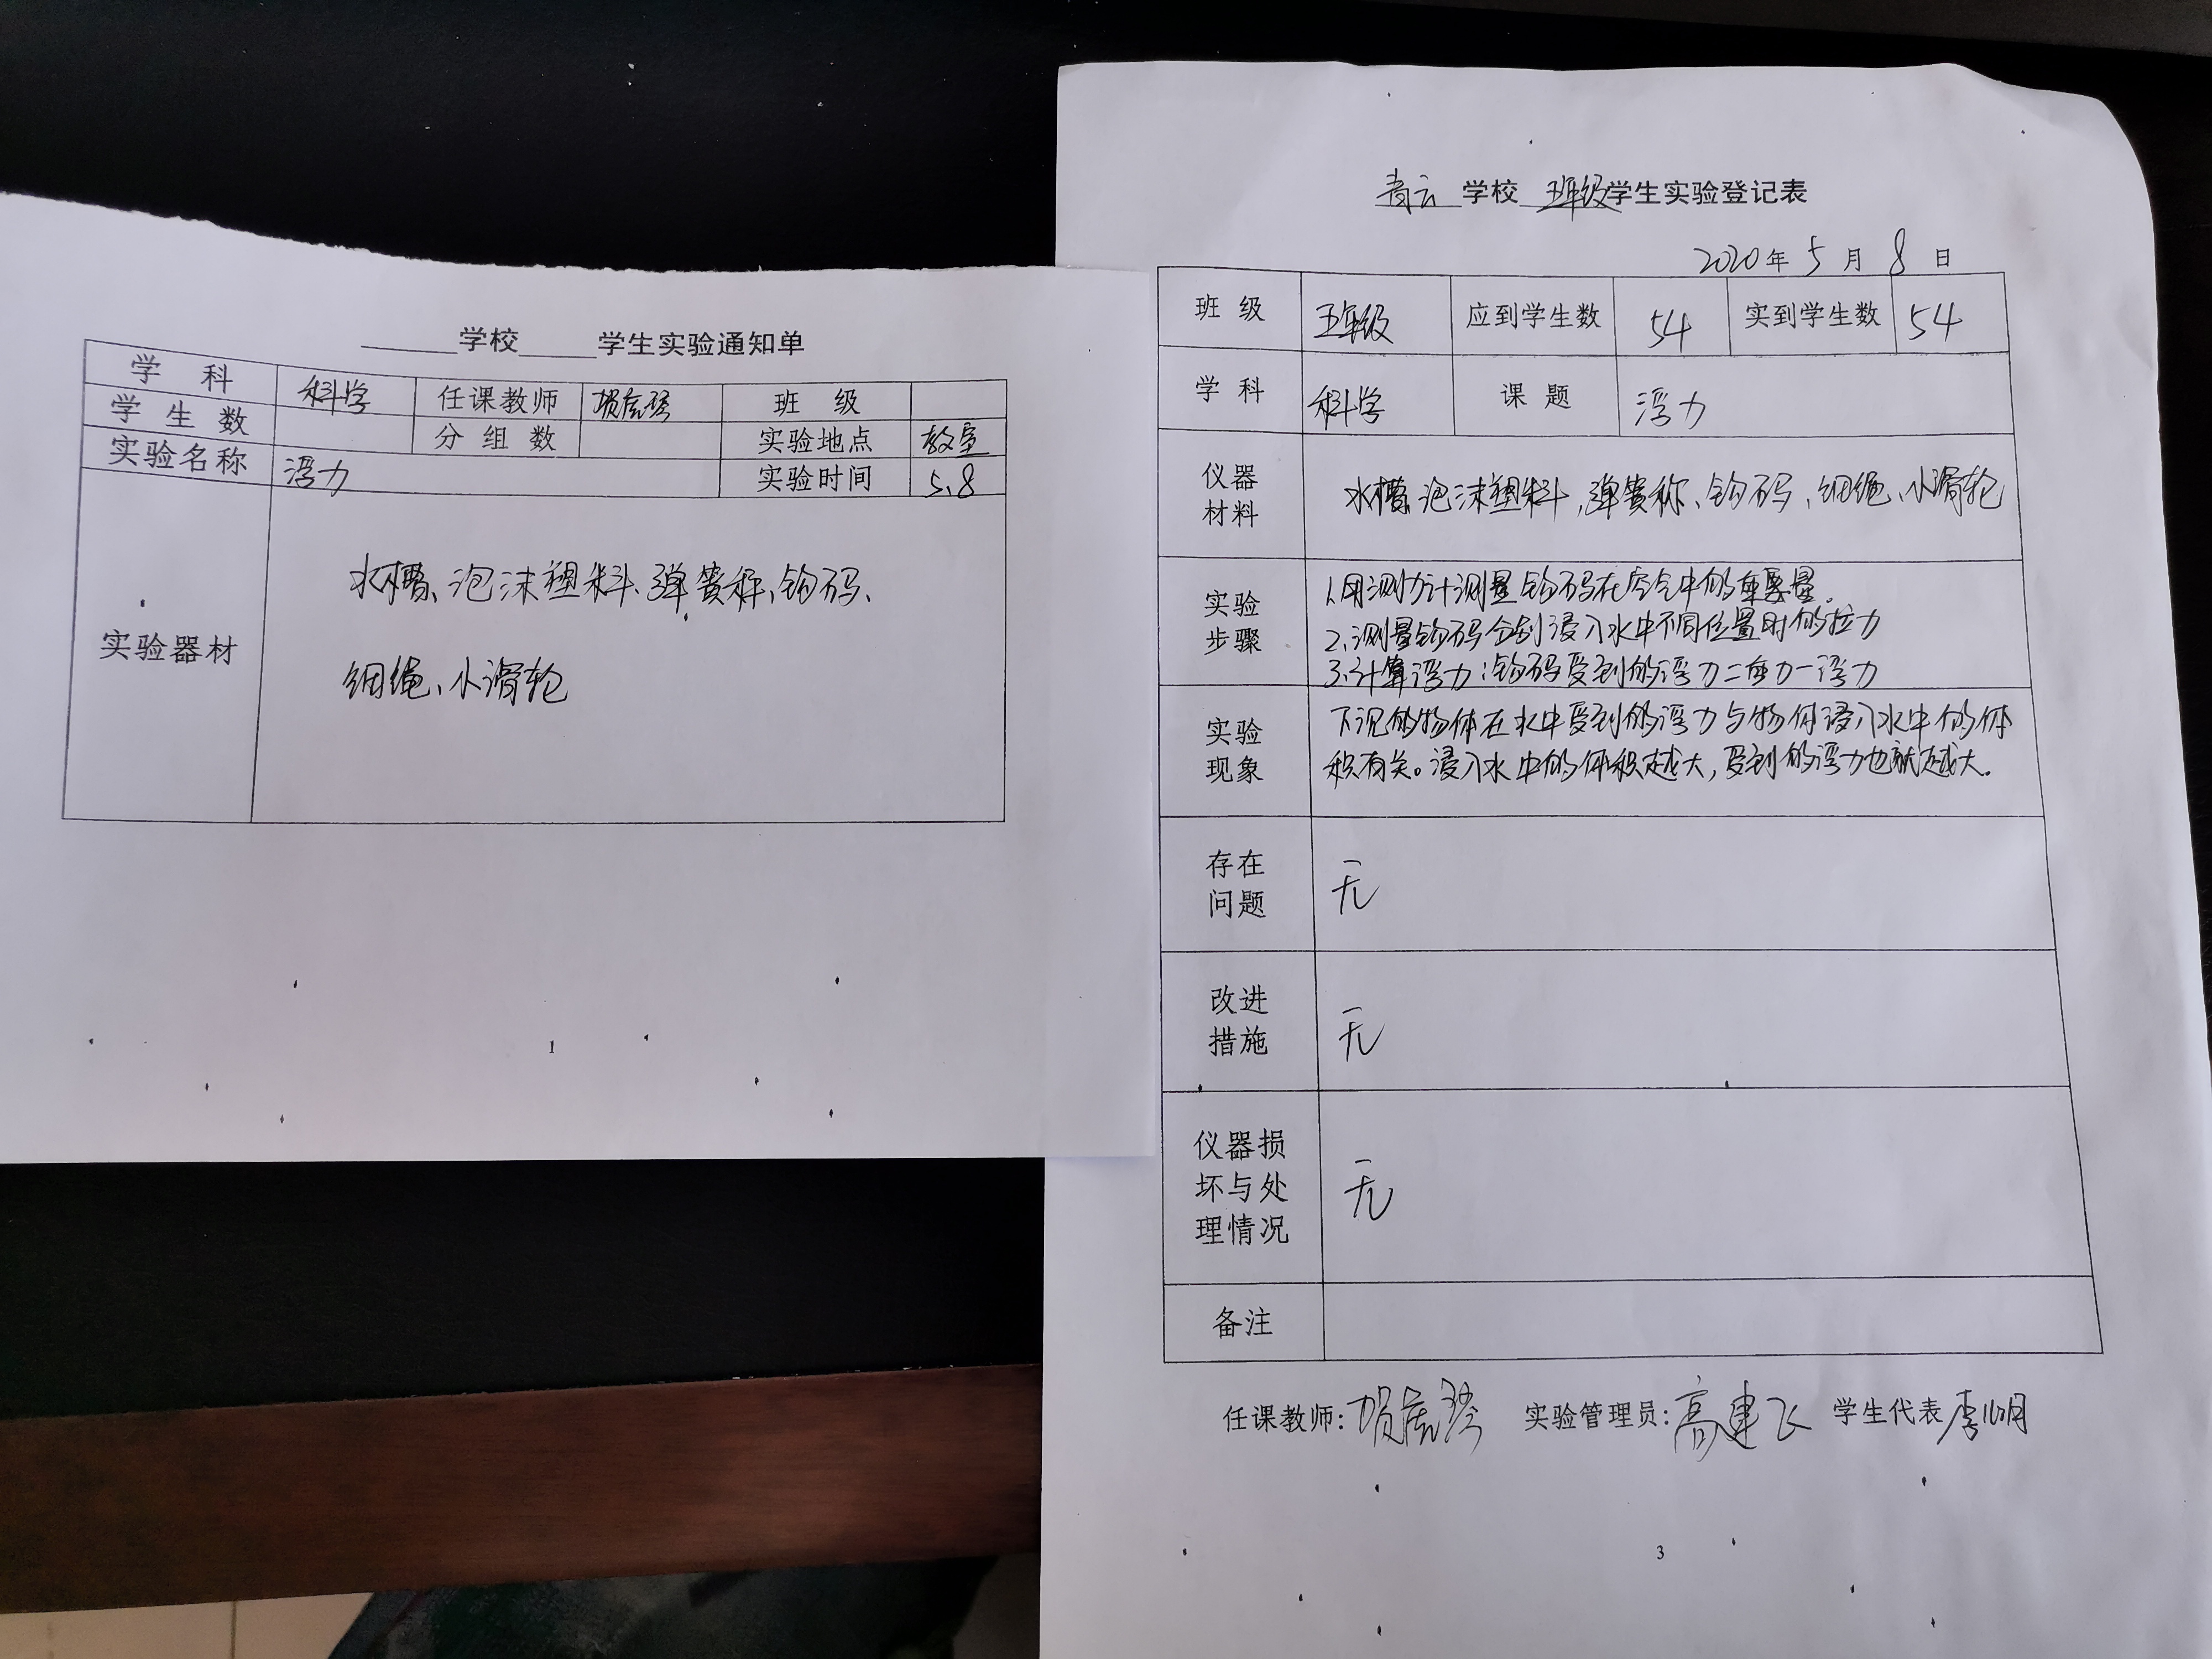 学校 学生实验通知单
学 科 科学 任课教师 班 级
学 生 数 分 组 数 实验地点 教室
实验名称 浮力 实验时间 5.8
实验器材
水槽、泡沫塑料、弹簧称、钩码、
细绳、小滑轮
1
青云 学校 五年级 学生实验登记表
2020 年 5 月 8 日
班 级 五年级 应到学生数 54 实到学生数 54
学 科 科学 课 题 浮力
仪器
材料
水槽、泡沫塑料,弹簧称、钩码、细绳、小滑轮
实验
步骤
1.用测力计测量钩码在空气中的重量。
2.测量钩码分别浸入水中不同位置时的拉力
3.计算浮力:钩码受到的浮力=重力-浮力
实验
现象
下沉的物体在水中受到的浮力与物体浸入水中的体
积有关。浸入水中的体积越大,受到的浮力也就越大。
存在
问题
无
改进
措施
无
仪器损
坏与处
理情况
无
备注
任课教师: 实验管理员:高建飞 学生代表
3